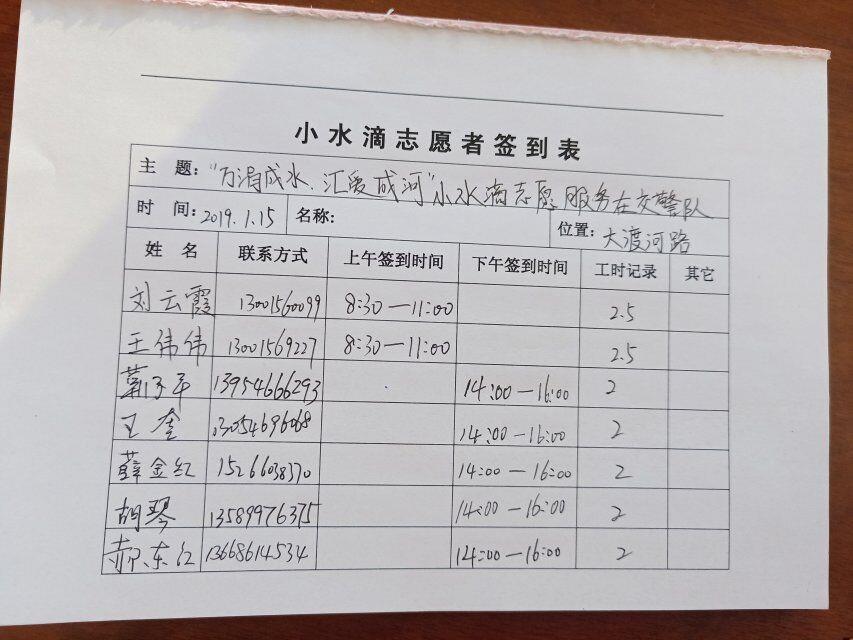 小水滴志愿者签到表
主 题：“万涓成水、汇爱成河”小水滴志愿服务在交警队
时 间：2019.1.15 名称： 位置：大渡河路
姓 名 联系方式 上午签到时间 下午签到时间 工时记录 其它
刘云霞 13001560099 8:30—11:00 2.5
王伟伟 13001569227 8:30—11:00 2.5
13954666293 14:00—16:00 2
王奎 13054696068 14:00—16:00 2
薛金红 15266038370 14:00—16:00 2
胡琴 13589976375 14:00—16:00 2
郝东红 13668614534 14:00—16:00 2